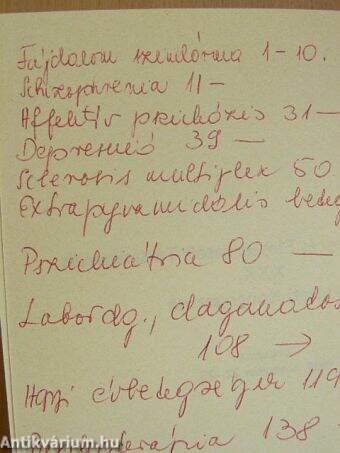 Fájdalom szindróma 1-10.
Schizophrenia 11-
Affektív pszichózis 31-
Depresszió 39 -
Sclerosis multiplex 50.
Extrapyramidális beteg
Pszichiátria 80 -
Labordg., daganatos
108 →
Hapi érbetegségek 119
138
Antikvárium.hu